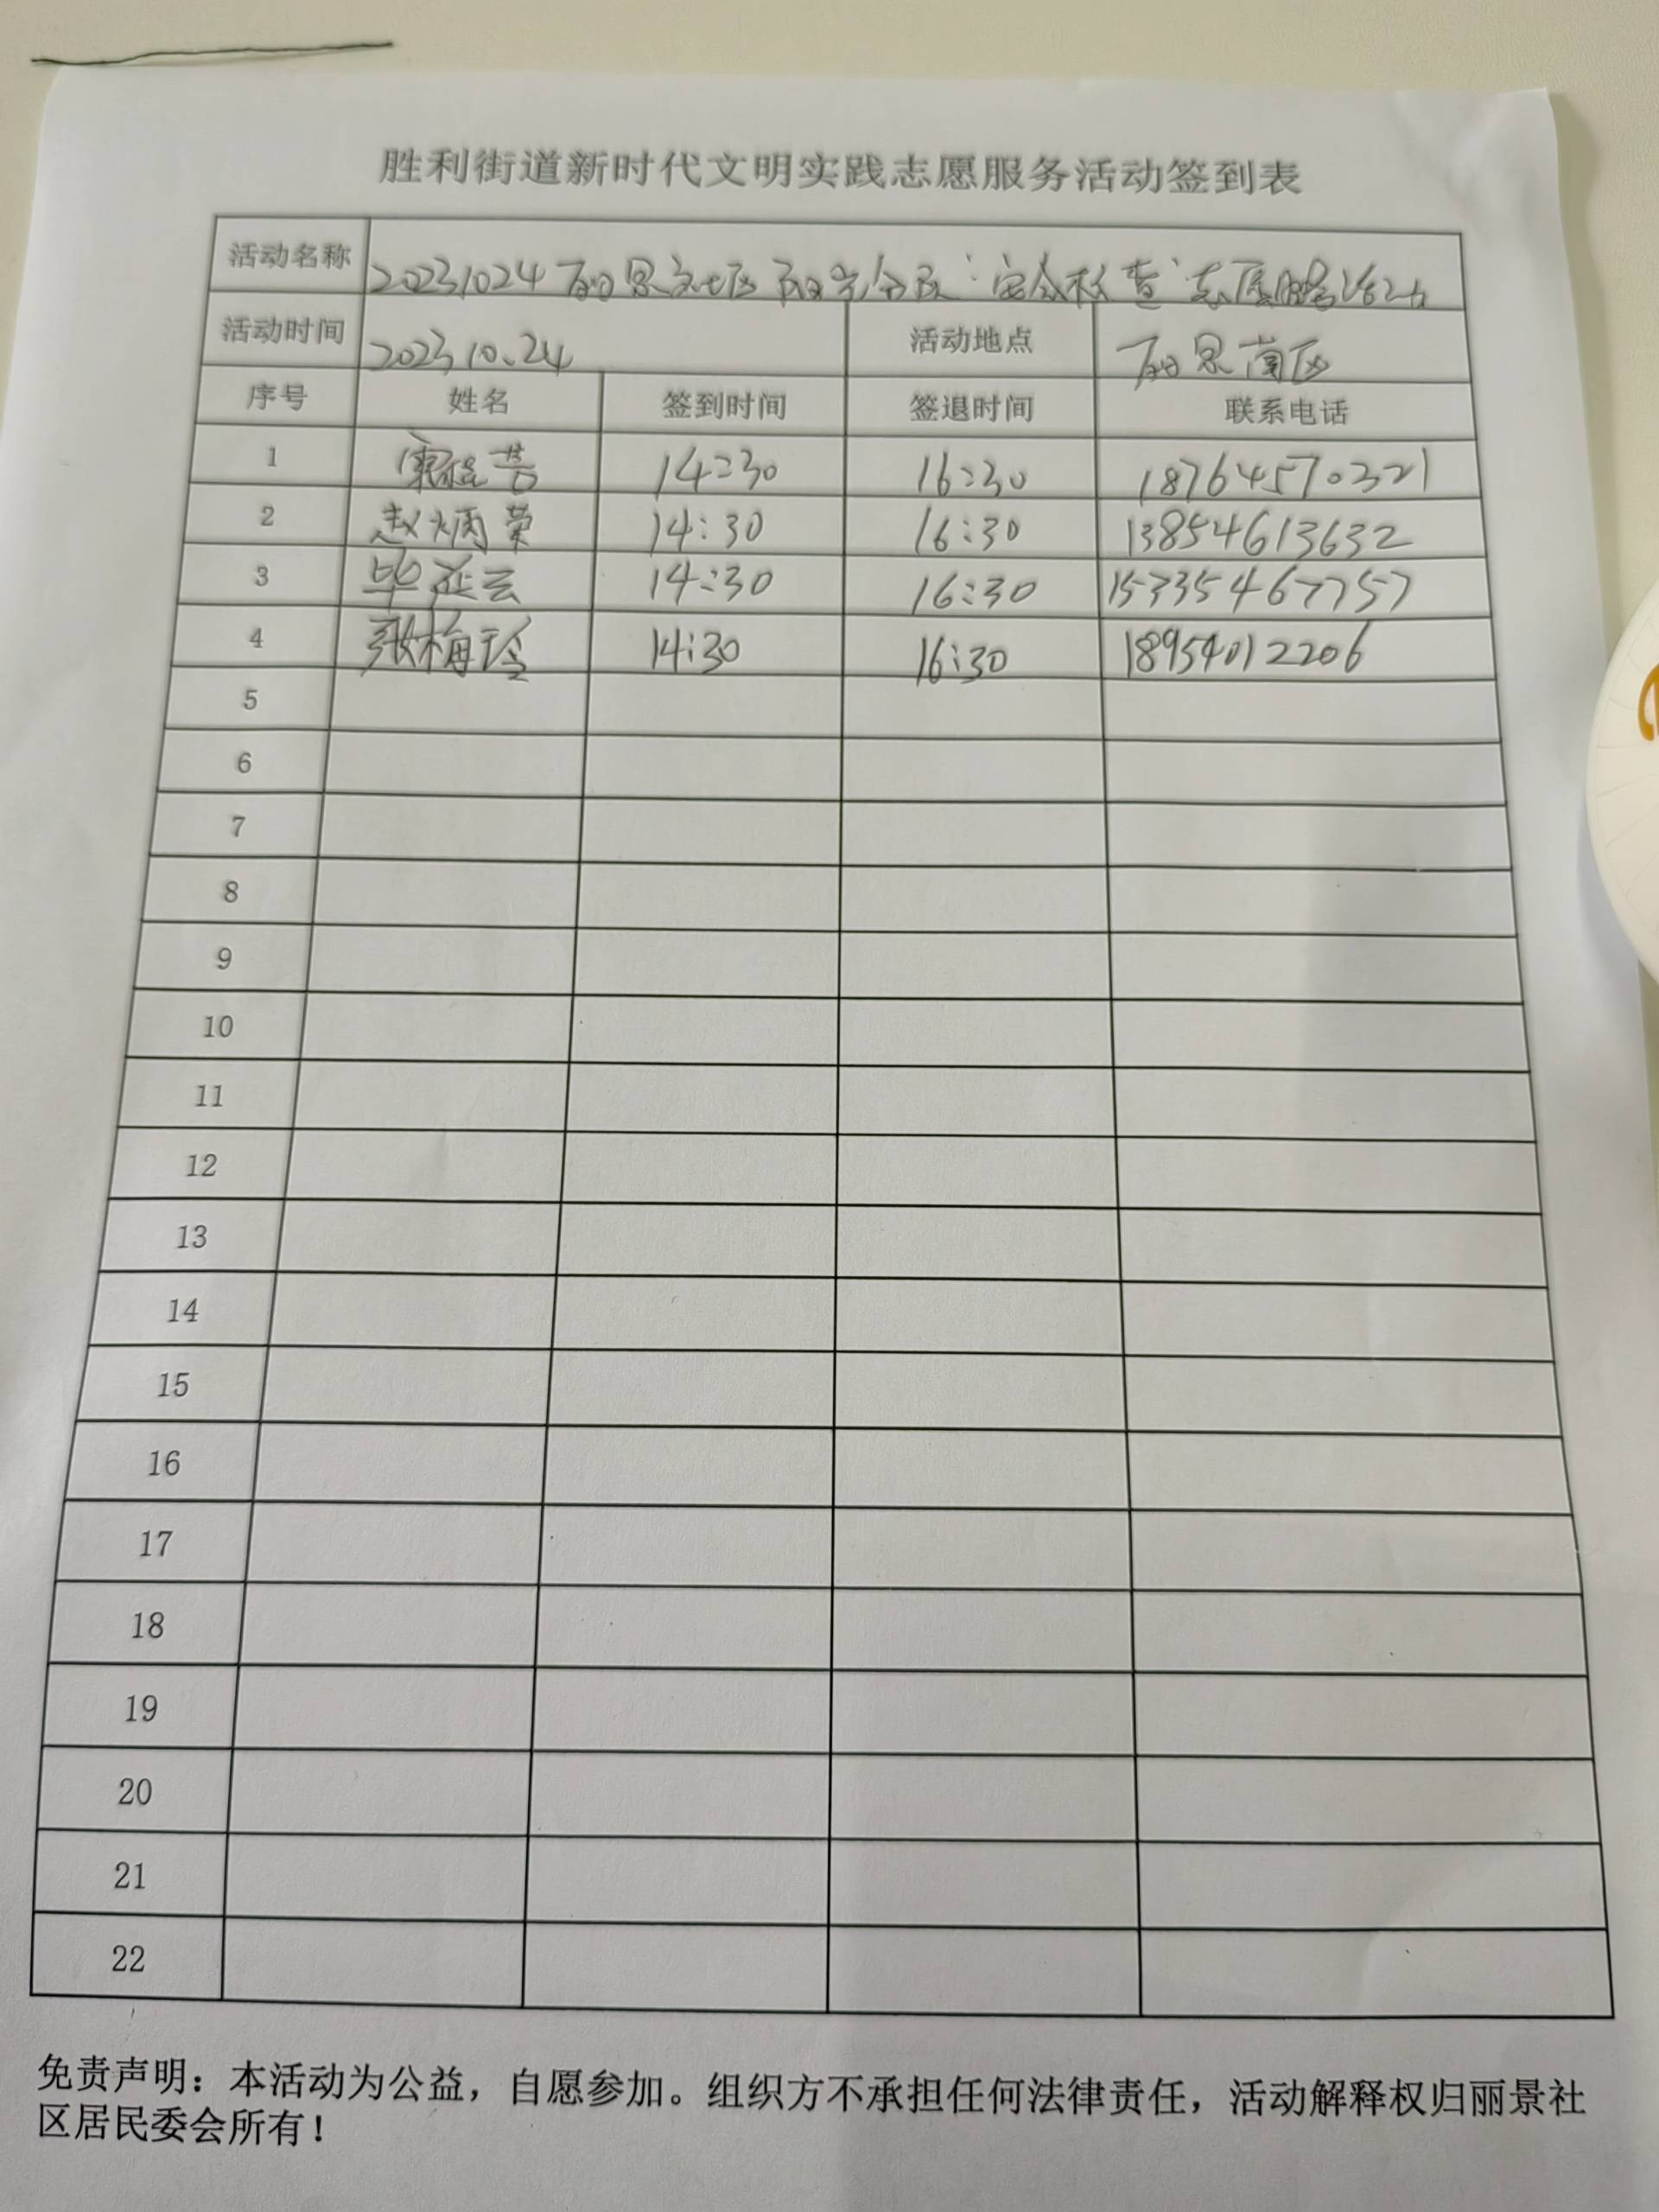 胜利街道新时代文明实践志愿服务活动签到表
活动名称 20231024丽景社区阳光分队“安全检查”志愿服务活动
活动时间 2023.10.24 活动地点 丽景南区
序号 姓名 签到时间 签退时间 联系电话
1 14:30 16:30 18764570321
2 赵炳荣 14:30 16:30 13854613632
3 毕延云 14:30 16:30 15335467757
4 张梅玲 14:30 16:30 18954012206
5
6
7
8
9
10
11
12
13
14
15
16
17
18
19
20
21
22
免责声明：本活动为公益，自愿参加。组织方不承担任何法律责任，活动解释权归丽景社
区居民委会所有！